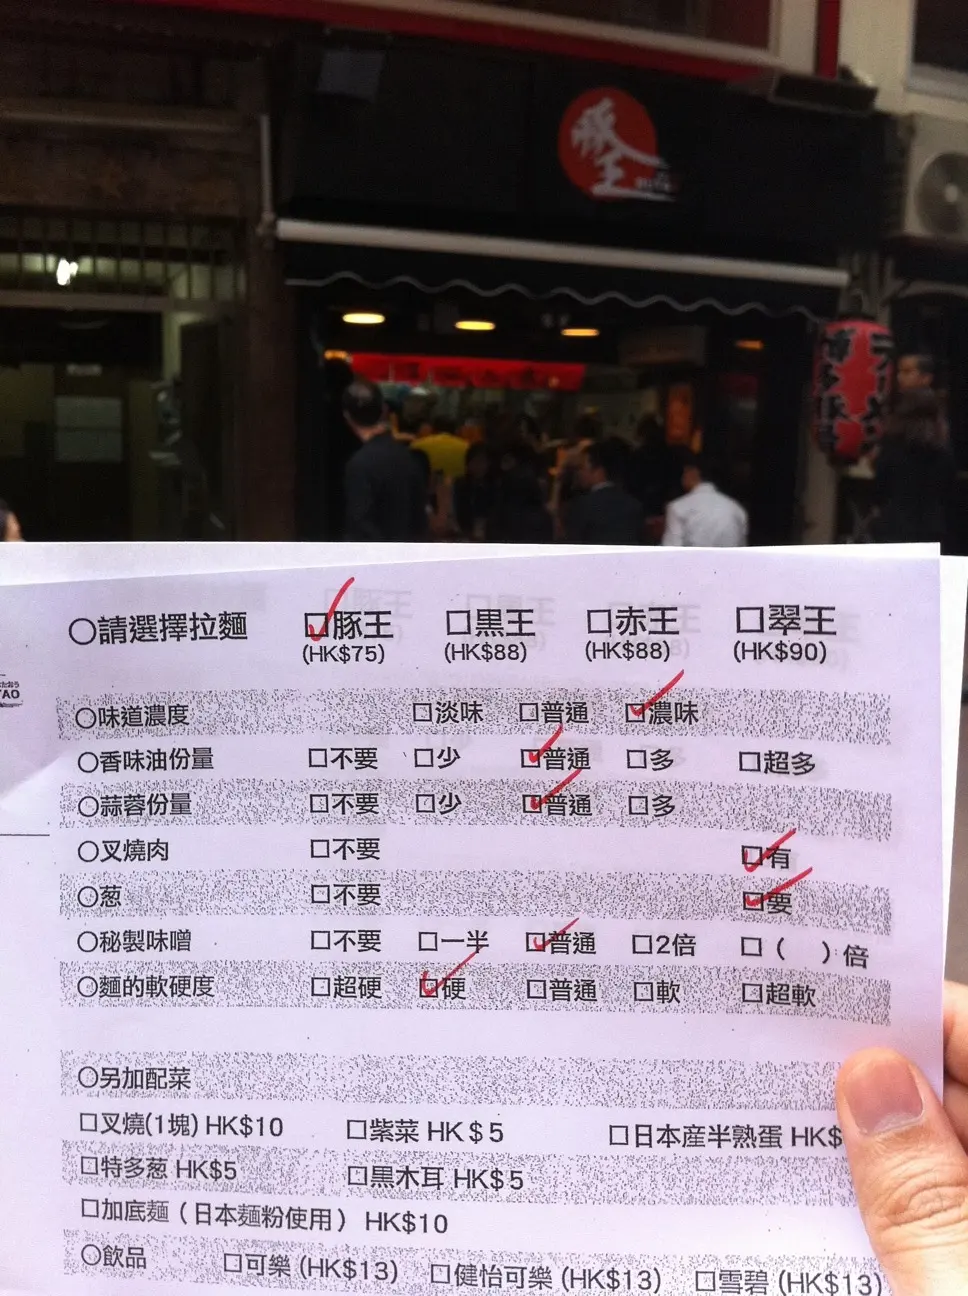 豚王
ラーメン
博多豚骨
○請選擇拉麵 □豚王 □黒王 □赤王 □翠王
(HK$75) (HK$88) (HK$88) (HK$90)
○味道濃度 □淡味 □普通 □濃味
○香味油份量 □不要 □少 □普通 □多 □超多
○蒜蓉份量 □不要 □少 □普通 □多
○叉燒肉 □不要 □有
○葱 □不要 □要
○秘製味噌 □不要 □一半 □普通 □2倍 □( )倍
○麵的軟硬度 □超硬 □硬 □普通 □軟 □超軟
○另加配菜
□叉燒(1塊) HK$10 □紫菜 HK$5 □日本産半熟蛋 HK$
□特多葱 HK$5 □黒木耳 HK$5
□加底麵(日本麵粉使用) HK$10
○飲品 □可樂 (HK$13) □健怡可樂 (HK$13) □雪碧 (HK$13)